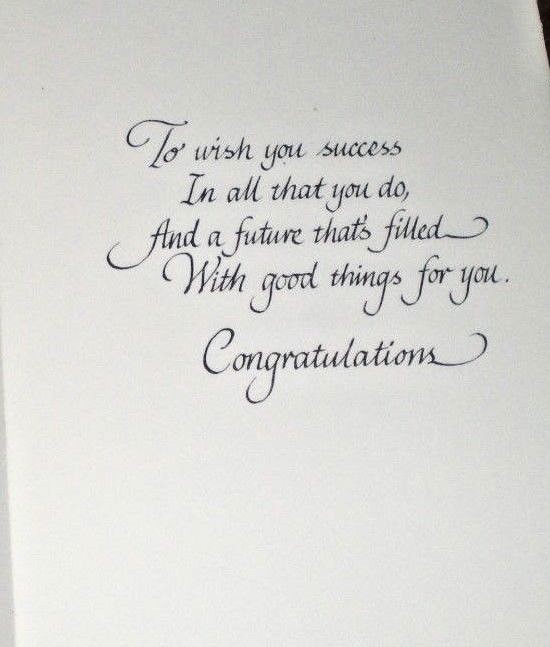 To wish you success
In all that you do,
And a future that's filled
With good things for you.
Congratulations